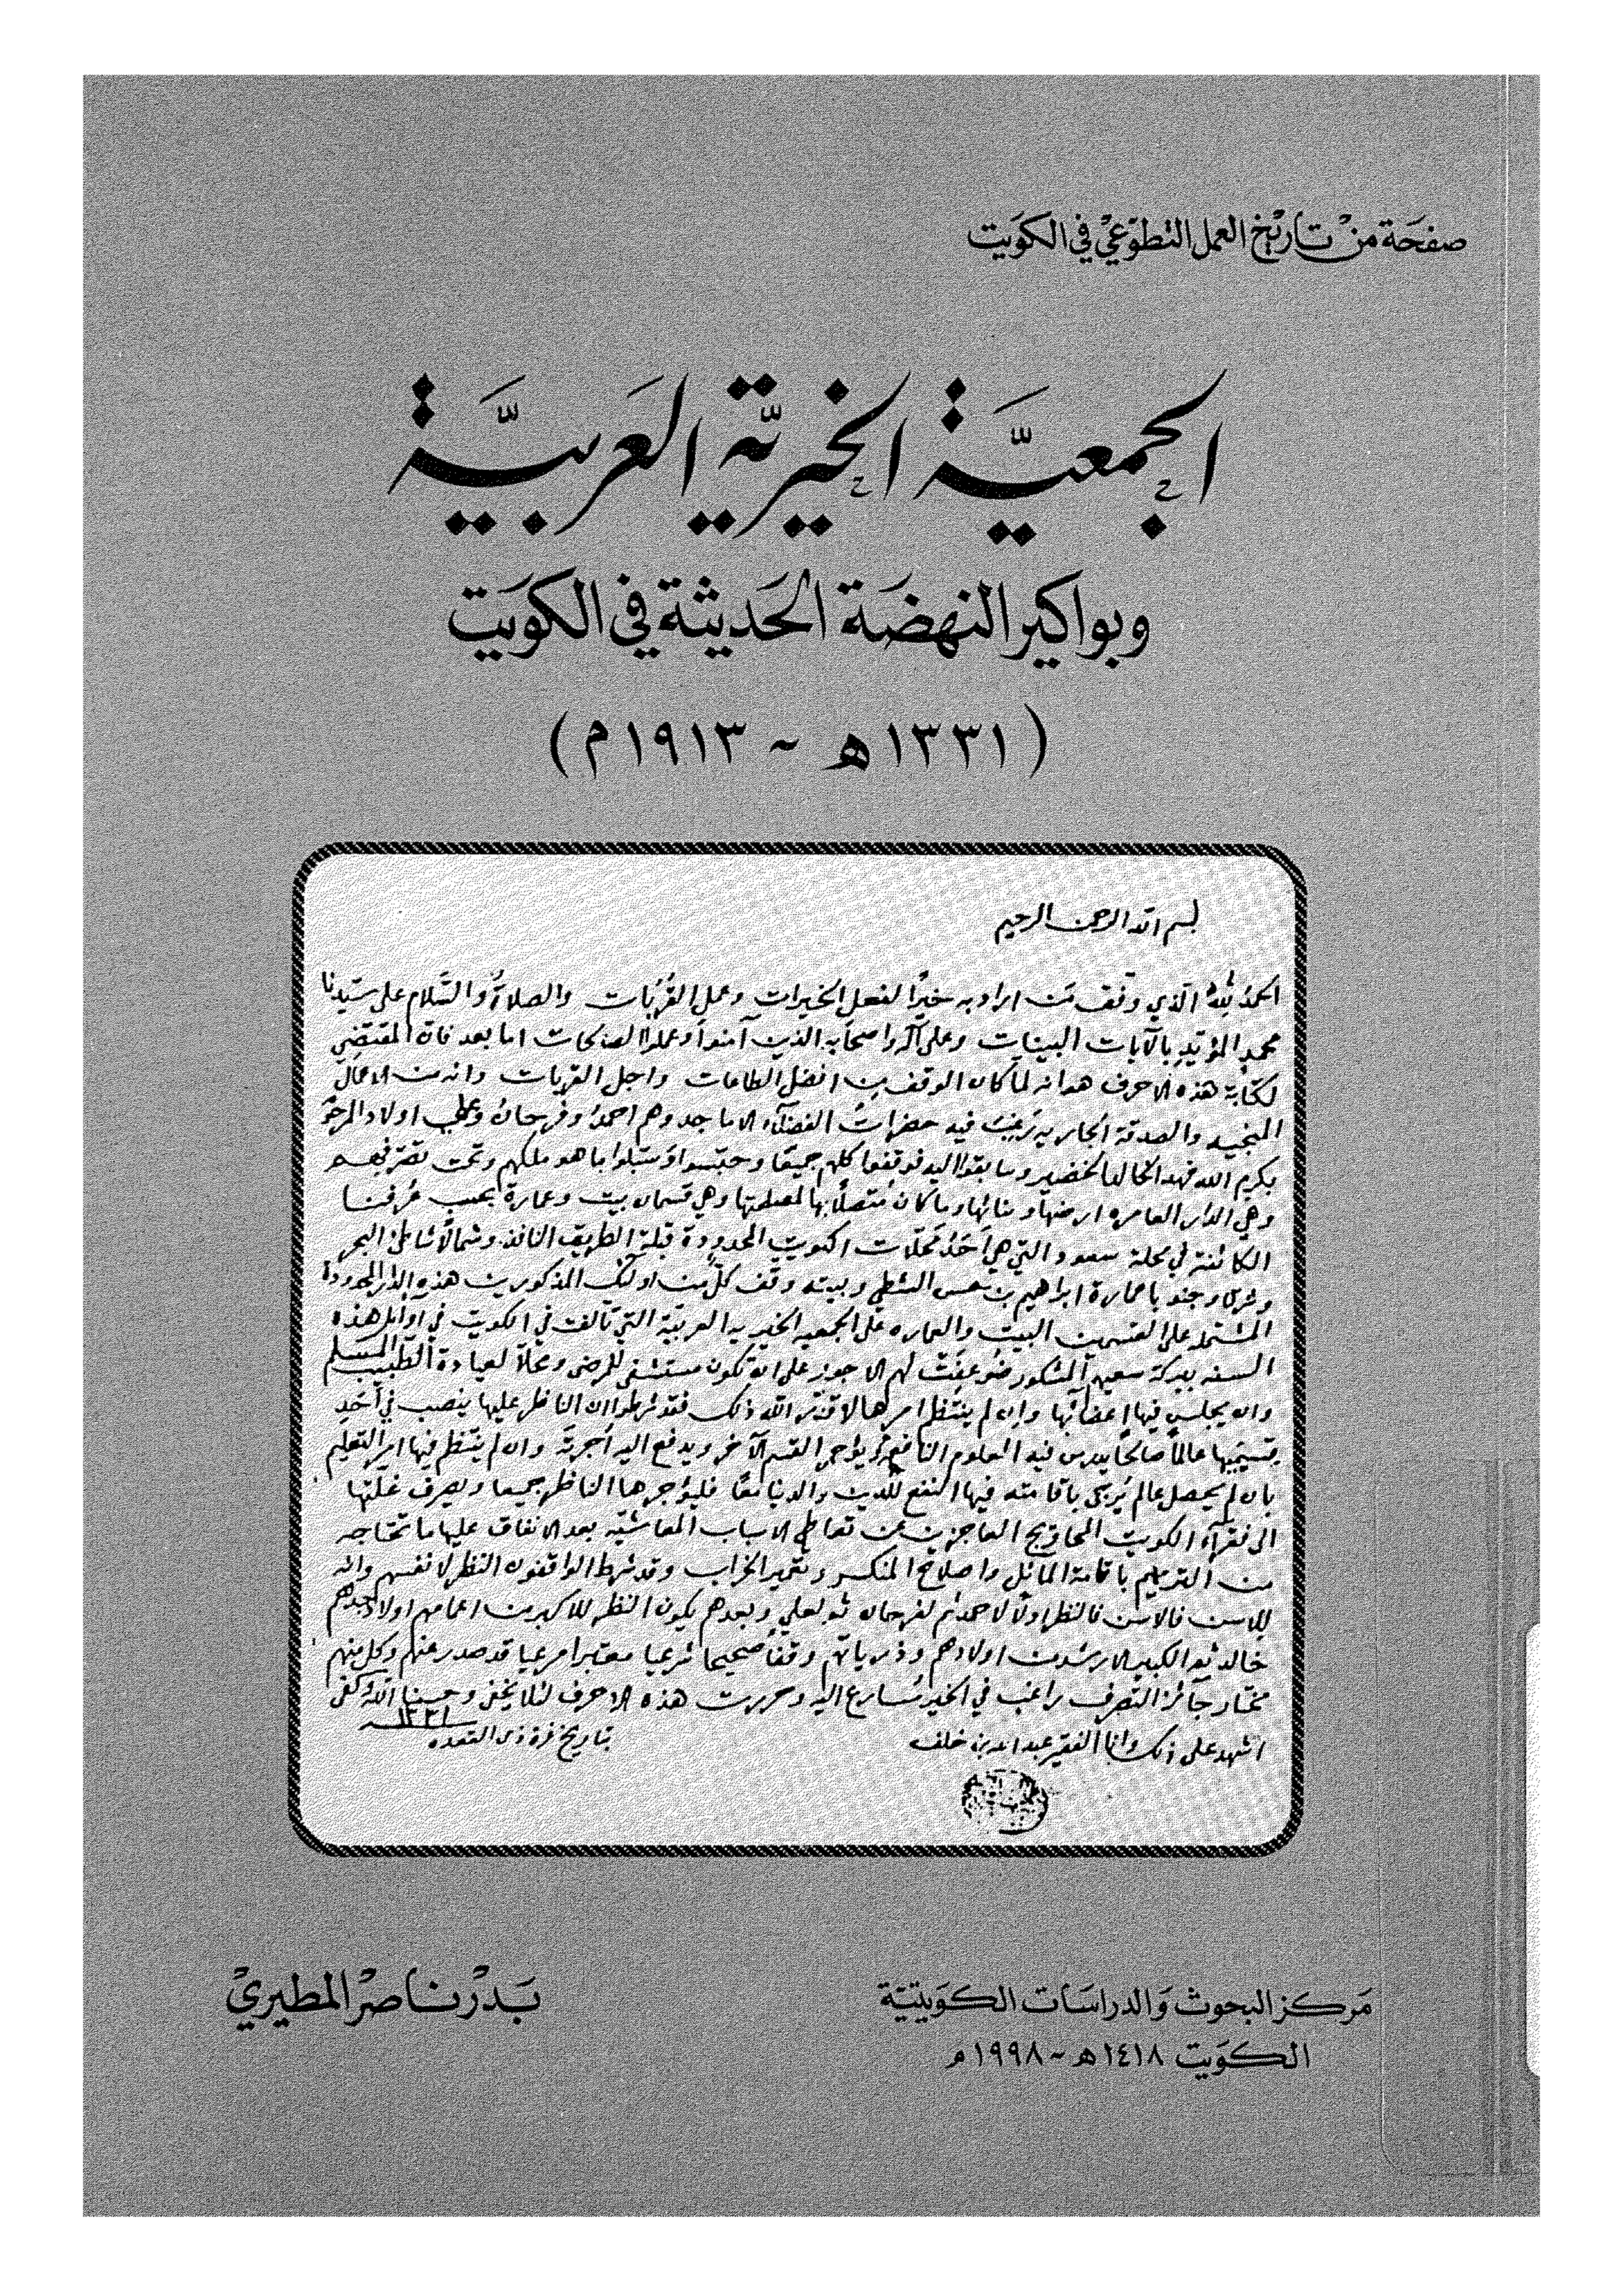 صفحة من تاريخ العمل التطوعي في الكويت
الجمعيّة الخيريّة العربيّة
وبواكير النهضة الحديثة في الكويت
(١٣٣١هـ ~ ١٩١٣م)
بسم الله الرحمن الرحيم
الحمدُ للهِ الّذي وفّق مَن اراد به خيرًا لفعل الخيرات وعمل القُرُبات والصلاةُ والسَّلام على سيّدنا
محمدٍ المؤيّدِ بالآيات البينات وعلى آله واصحابه الذين آمنوا وعملوا الصالحات اما بعد فان المقتضِي
لكتابة هذه الاحرف هو انه لما كان الوقف من افضل الطاعات واجل القربات وانه من الاعمال
المنجيه والصدقة الجاريه رَغِبَتْ فيه حضراتُ الفضلاء الاماجد وهم احمدُ وفرحانُ وعلي اولاد المرحوم
بكرم الله فهد الخالد الخضير وسابقوا اليه فوقفوا كلهم جميعًا وحبّسوا وسَبّلوا ما هو ملكهم وتحت تصرّفهم
وهي الدار العامره ارضها وبنائها وما كان مُتّصلًا بها لمصلحتها وهي قسمان بيت وعمارة بحسب عُرفنا
الكائنة في محلة سعود والتي هي أحَدُ مَحلّات الكويت المحدودة قبلةً الطريق النافذ وشمالًا شاطئ البحر
وشرقا وجنوبا عمارة ابراهيم بن الشطي وبيته وقف كلٌّ من اولئك المذكورين هذه الدار المحدودة
المشتملة على القسمين البيت والعماره على الجمعيه الخيريه العربيّة التي تألفت في الكويت في أوائل هذه
السنه ببركة سعيهم المشكور ضُوعِفَتْ لهم الاجور على ان تكون مستشفى للمرضى ومحلًا لعيادة الطبيب المسلم
وان يجلس فيها اعضائُها وان لم ينتظم امرها لا قدّر الله ذلك فقد شرطوا ان الناظر عليها ينصب في أحَدِ
قسمَيها عالمًا صالحًا يدرس فيه العلوم النافعة ويؤجر القسم الآخر ويدفع اليه أجرتَه وان لم ينتظم فيها امر التعليم
بان لم يحصل عالم يُرجى باقامته فيها النفع للدين والدنيا معًا فليؤجرها الناظر جميعا وليصرف غلّتها
الى فقرآء الكويت المحاويج العاجزين عن تعاطي الاسباب المعاشيّه بعد الانفاق عليها ما تحتاجه
من الترميم باقامة المائل واصلاح المنكسر وتعمير الخراب وقد شرط الواقفون النظر لانفسهم وانه
للاسن فالاسن فالنظر اولًا لاحمد ثم لفرحان ثم لعلي وبعدهم يكون النظر للاكبر من اعمامهم اولاد جدهم
خالد ثم الكبير الارشد من اولادهم وذرياتهم وقفًا صحيحا شرعيا معتبرا مرعيا قد صدر عنهم وكل منهم
مختار جائز التصرف راغب في الخير مُسارع اليه وحررت هذه الاحرف لئلا يخفى وحسبنا الله وكفى
اشهد على ذلك وانا الفقير عبد الله بن خلف
بتاريخ غرة ذي القعده ١٣٣١
مركز البحوث والدراسات الكويتيّة
الكويت ١٤١٨هـ ~ ١٩٩٨م
بدر ناصر المطيري